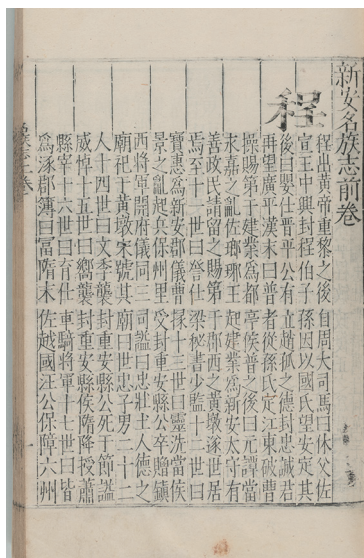 新安名族志前卷
程
程出黃帝重黎之後自周大司馬曰休父佐
宣王中興封程伯子孫因以國氏望安定其
後曰嬰仕晉平公有立趙孤之德封忠誠君
再望廣平漢末曰普者從孫氏定江東破曹
操賜第于建業為都亭侯普之後曰元譚當
永嘉之亂佐瑯琊王起建業為新安太守有
善政民請留之賜第于郡西之黃墩遂世居
焉至十一世曰詧仕梁秘書少監十二世曰
寶惠為新安郡儀曹掾十三世曰靈洗當侯
景之亂起兵保州里受封重安縣公卒贈鎮
西將軍開府儀同三司諡曰忠壯土人德之
廟祀于黃墩宋號其廟曰世忠子男二十二
人十四世曰文季襲封重安縣公死于節諡
威悼十五世曰嚮襲封重安縣侯隋降授蕭
縣宰十六世曰育仕車騎將軍十七世曰皆
為涿郡簿曰富隋末佐越國汪公保障六州